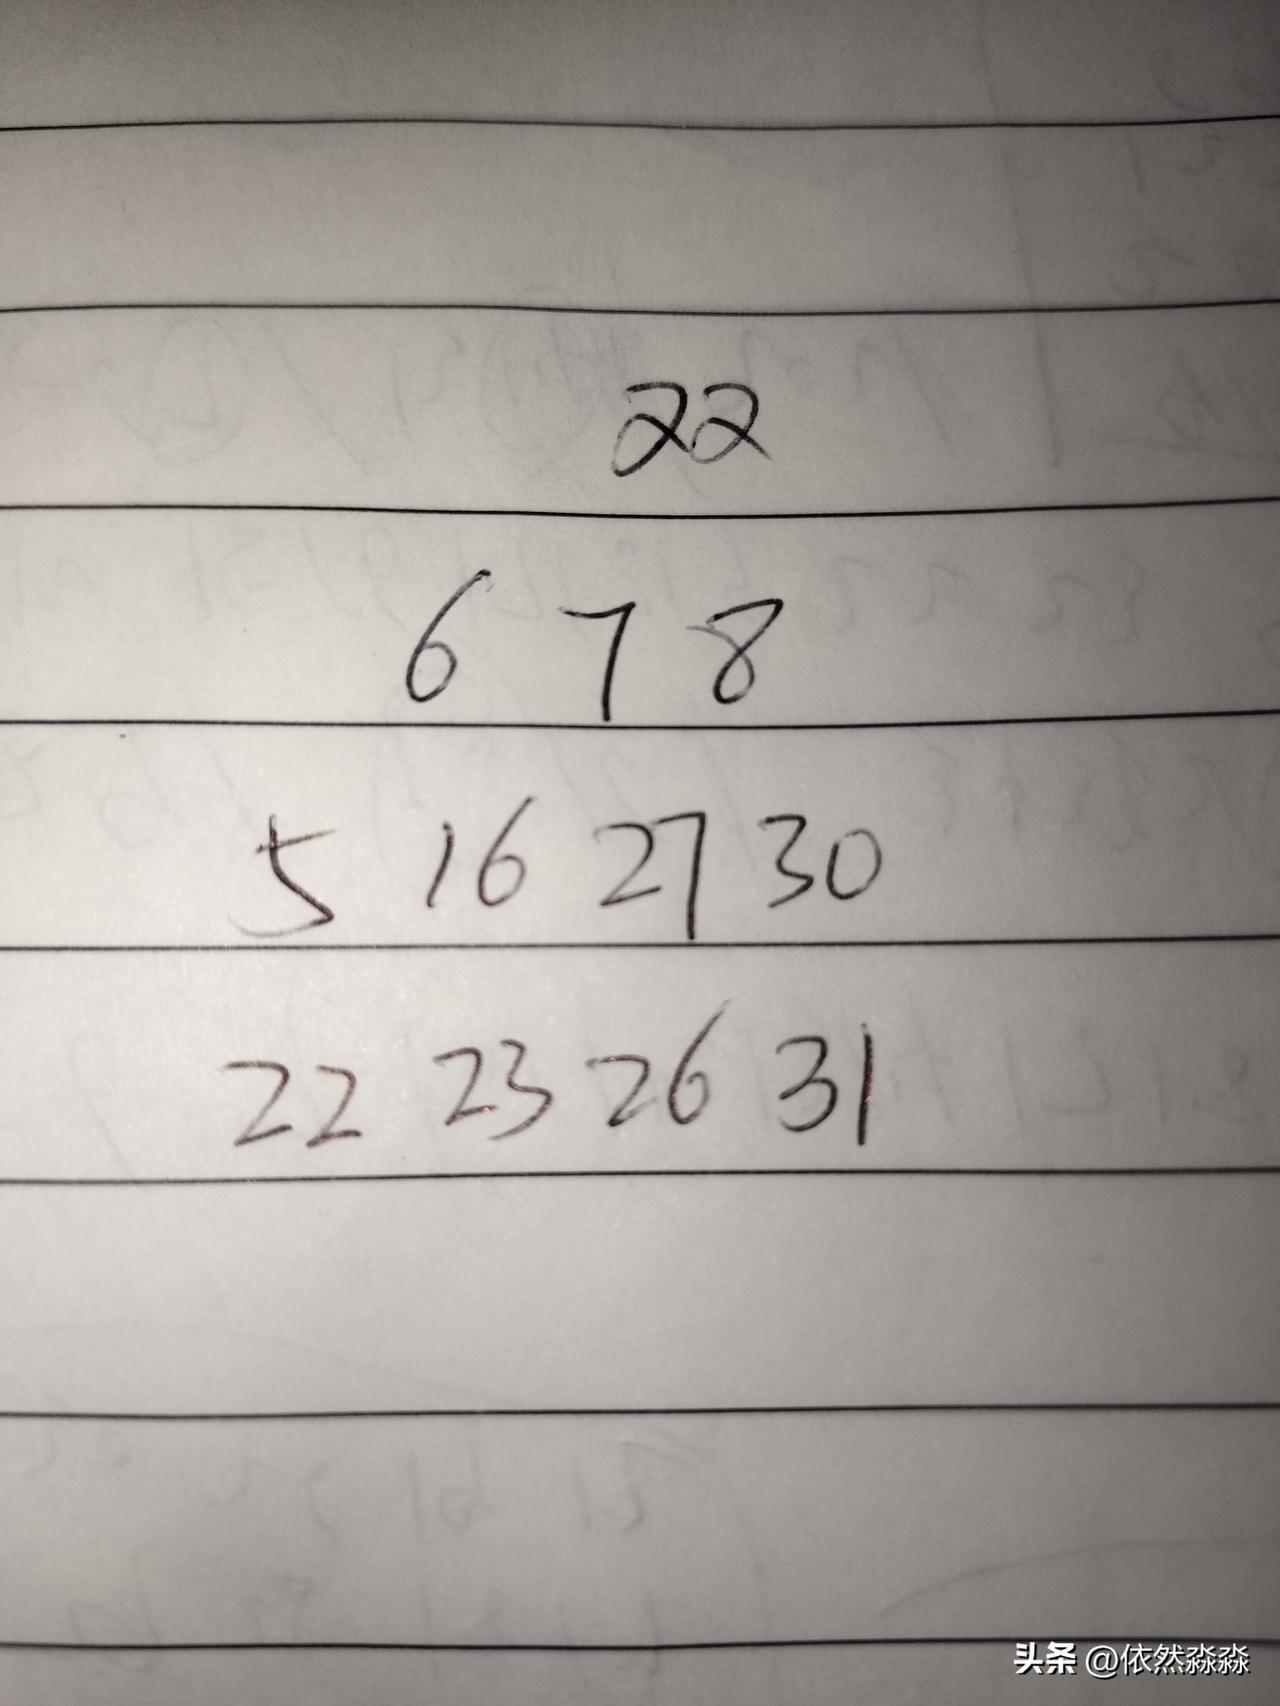 22
6 7 8
5 16 27 30
22 23 26 31
头条 @依然淼淼